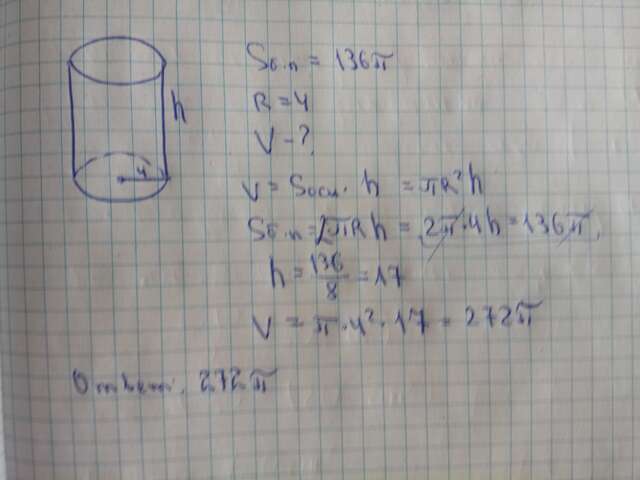 4
h
Sб.п = 136π
R = 4
V - ?
V = Sосн. h = πR²h
Sб.п = 2πRh = 2π·4h = 136π.
h = 136/8 = 17
V = π·4²·17 = 272π
Ответ: 272π